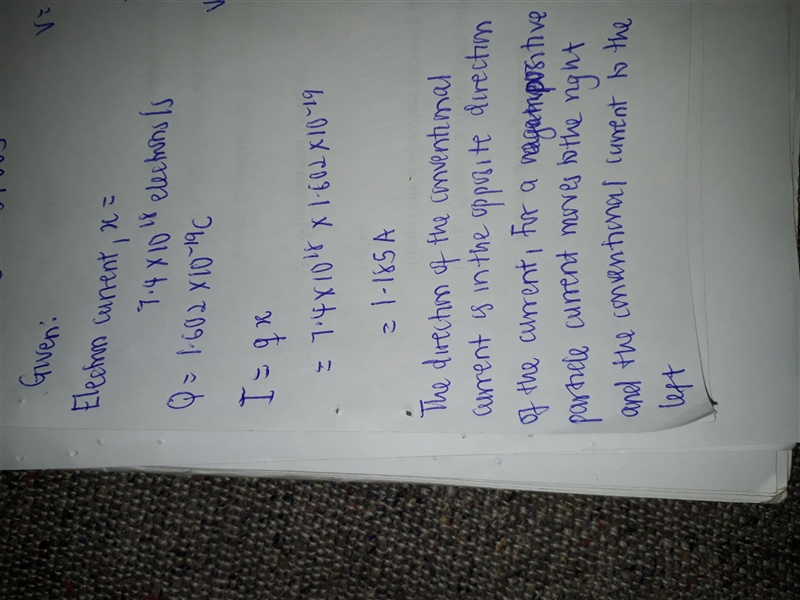 V=
V
Given:
Electron current, x =
7.4 × 10¹⁸ electrons/s
Q = 1.602 × 10⁻¹⁹C
I = q x
= 7.4×10¹⁸ × 1.602 × 10⁻¹⁹
= 1.185A
The direction of the conventional
current is in the opposite direction
of the current, For a positive
particle current moves to the right
and the conventional current to the
left